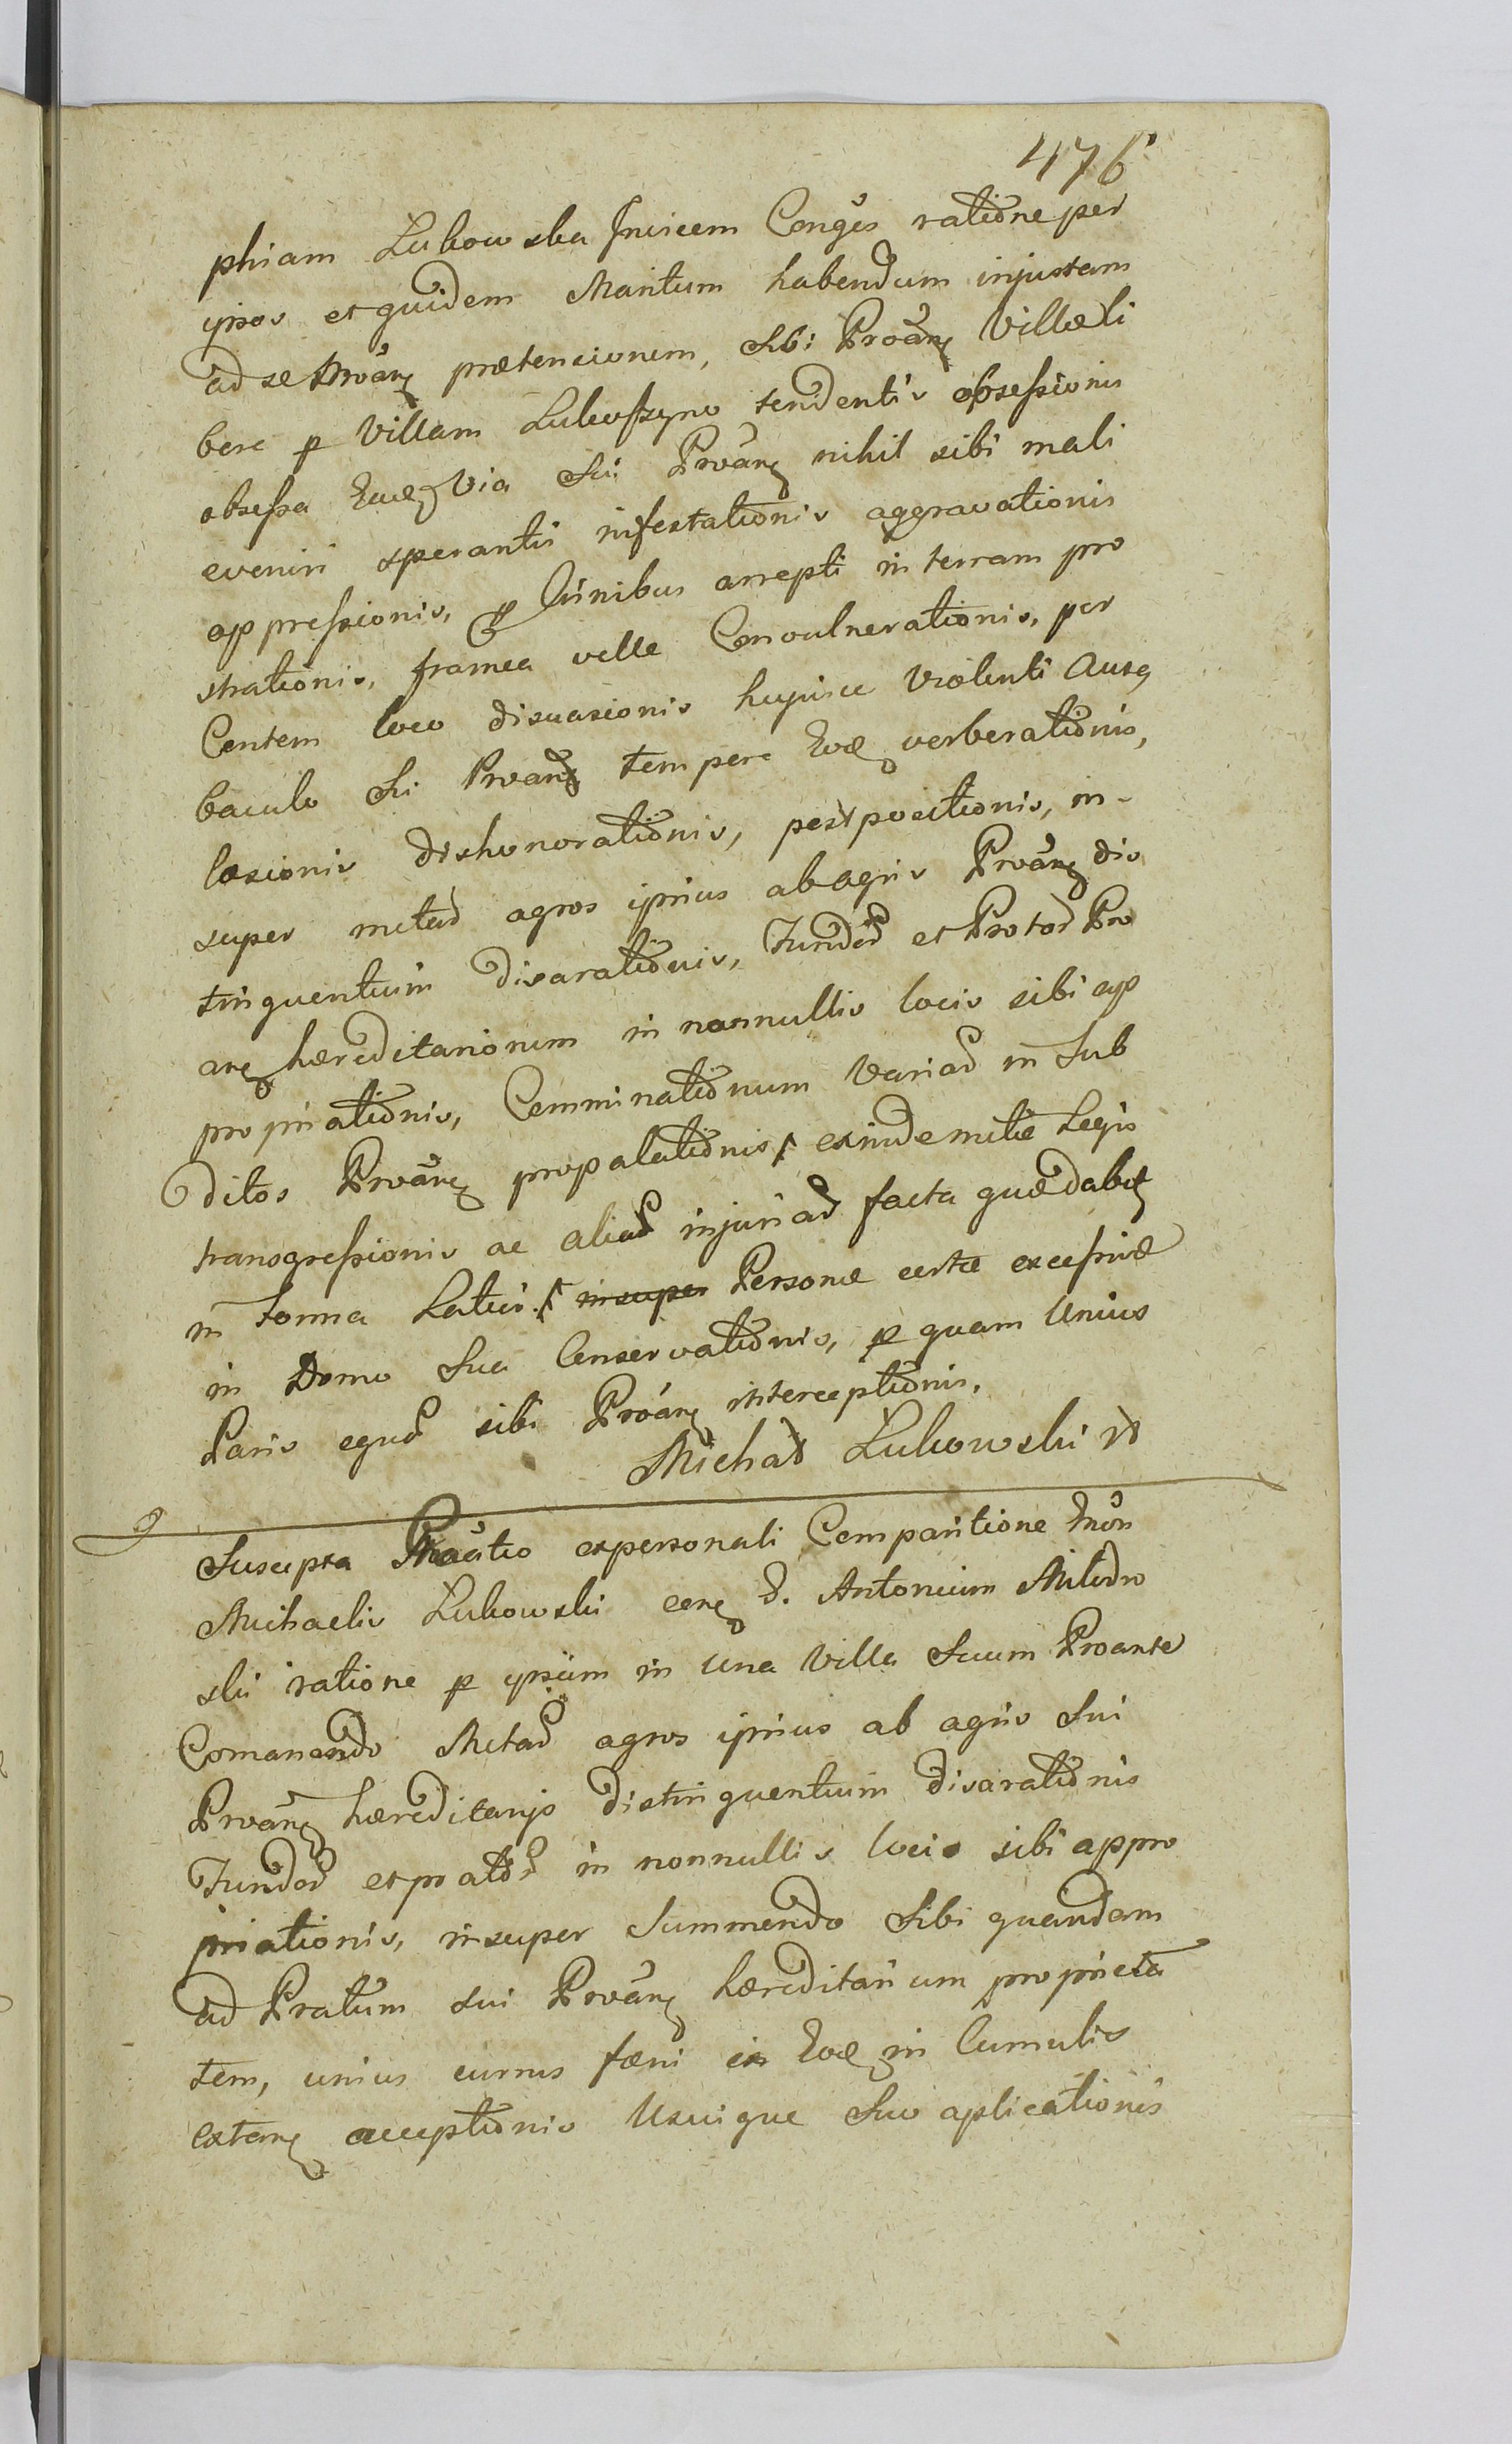 476
phiam Lukowska Invicem Conges ratione per
ipsos et quidem Maritum habendum injustam
ad se Proãng prætensionem, Sibi Proãng Villæ li
bere p Villam Lukoszyno tendentis obsessionis
obsessa Via Sui Proãng nihil sibi mali
eveniri sperantis infestationis aggravationis
oppressionis, p Crinibus arrepti in terram pro
strationis, framea velle Convulnerationis, per
Centem loco disuasionis hujusce Violenti Ausq
baculo Sui Proang tempore Eoq verberationis,
læsionis dishonorationis, postpositionis, in-
super metas agros ipsius ab agris Proãng dis
tinguentium disarationis, Fundi et Prator Pro
ang hæreditariorum in nonnullis locis sibi ap
propriationis, Comminationum Varias in Sub
ditos Proãng propalationis, exinde mite Legis
transgressionis ac alias injurias facta quæ dabit
in forma Latius insuper Personæ certæ excessivæ
in Domo Sua Conservationis, p quam Unius
Paris equor sibi Proáng interceptionis.
Michał Lukowski
Suscepta Proãtio ex personali Comparitione
Michaelis Lukowski cong G. Antonium Milodro
ski ratione p ipsum in una Villa Suum Proante
Comanendo Metas agros ipsius ab agris Sui
Proãng hæreditarijs distinguentium disarationis
Fundor et prator in nonnullis locis sibi appro
priationis, insuper Summendo Sibi quandam
ad Pratum sui Proãng hæreditarium proprieta
tem, unius currus fæni ex Eoq in Cumulis
extang acceptionis Usuique Suo aplicationis